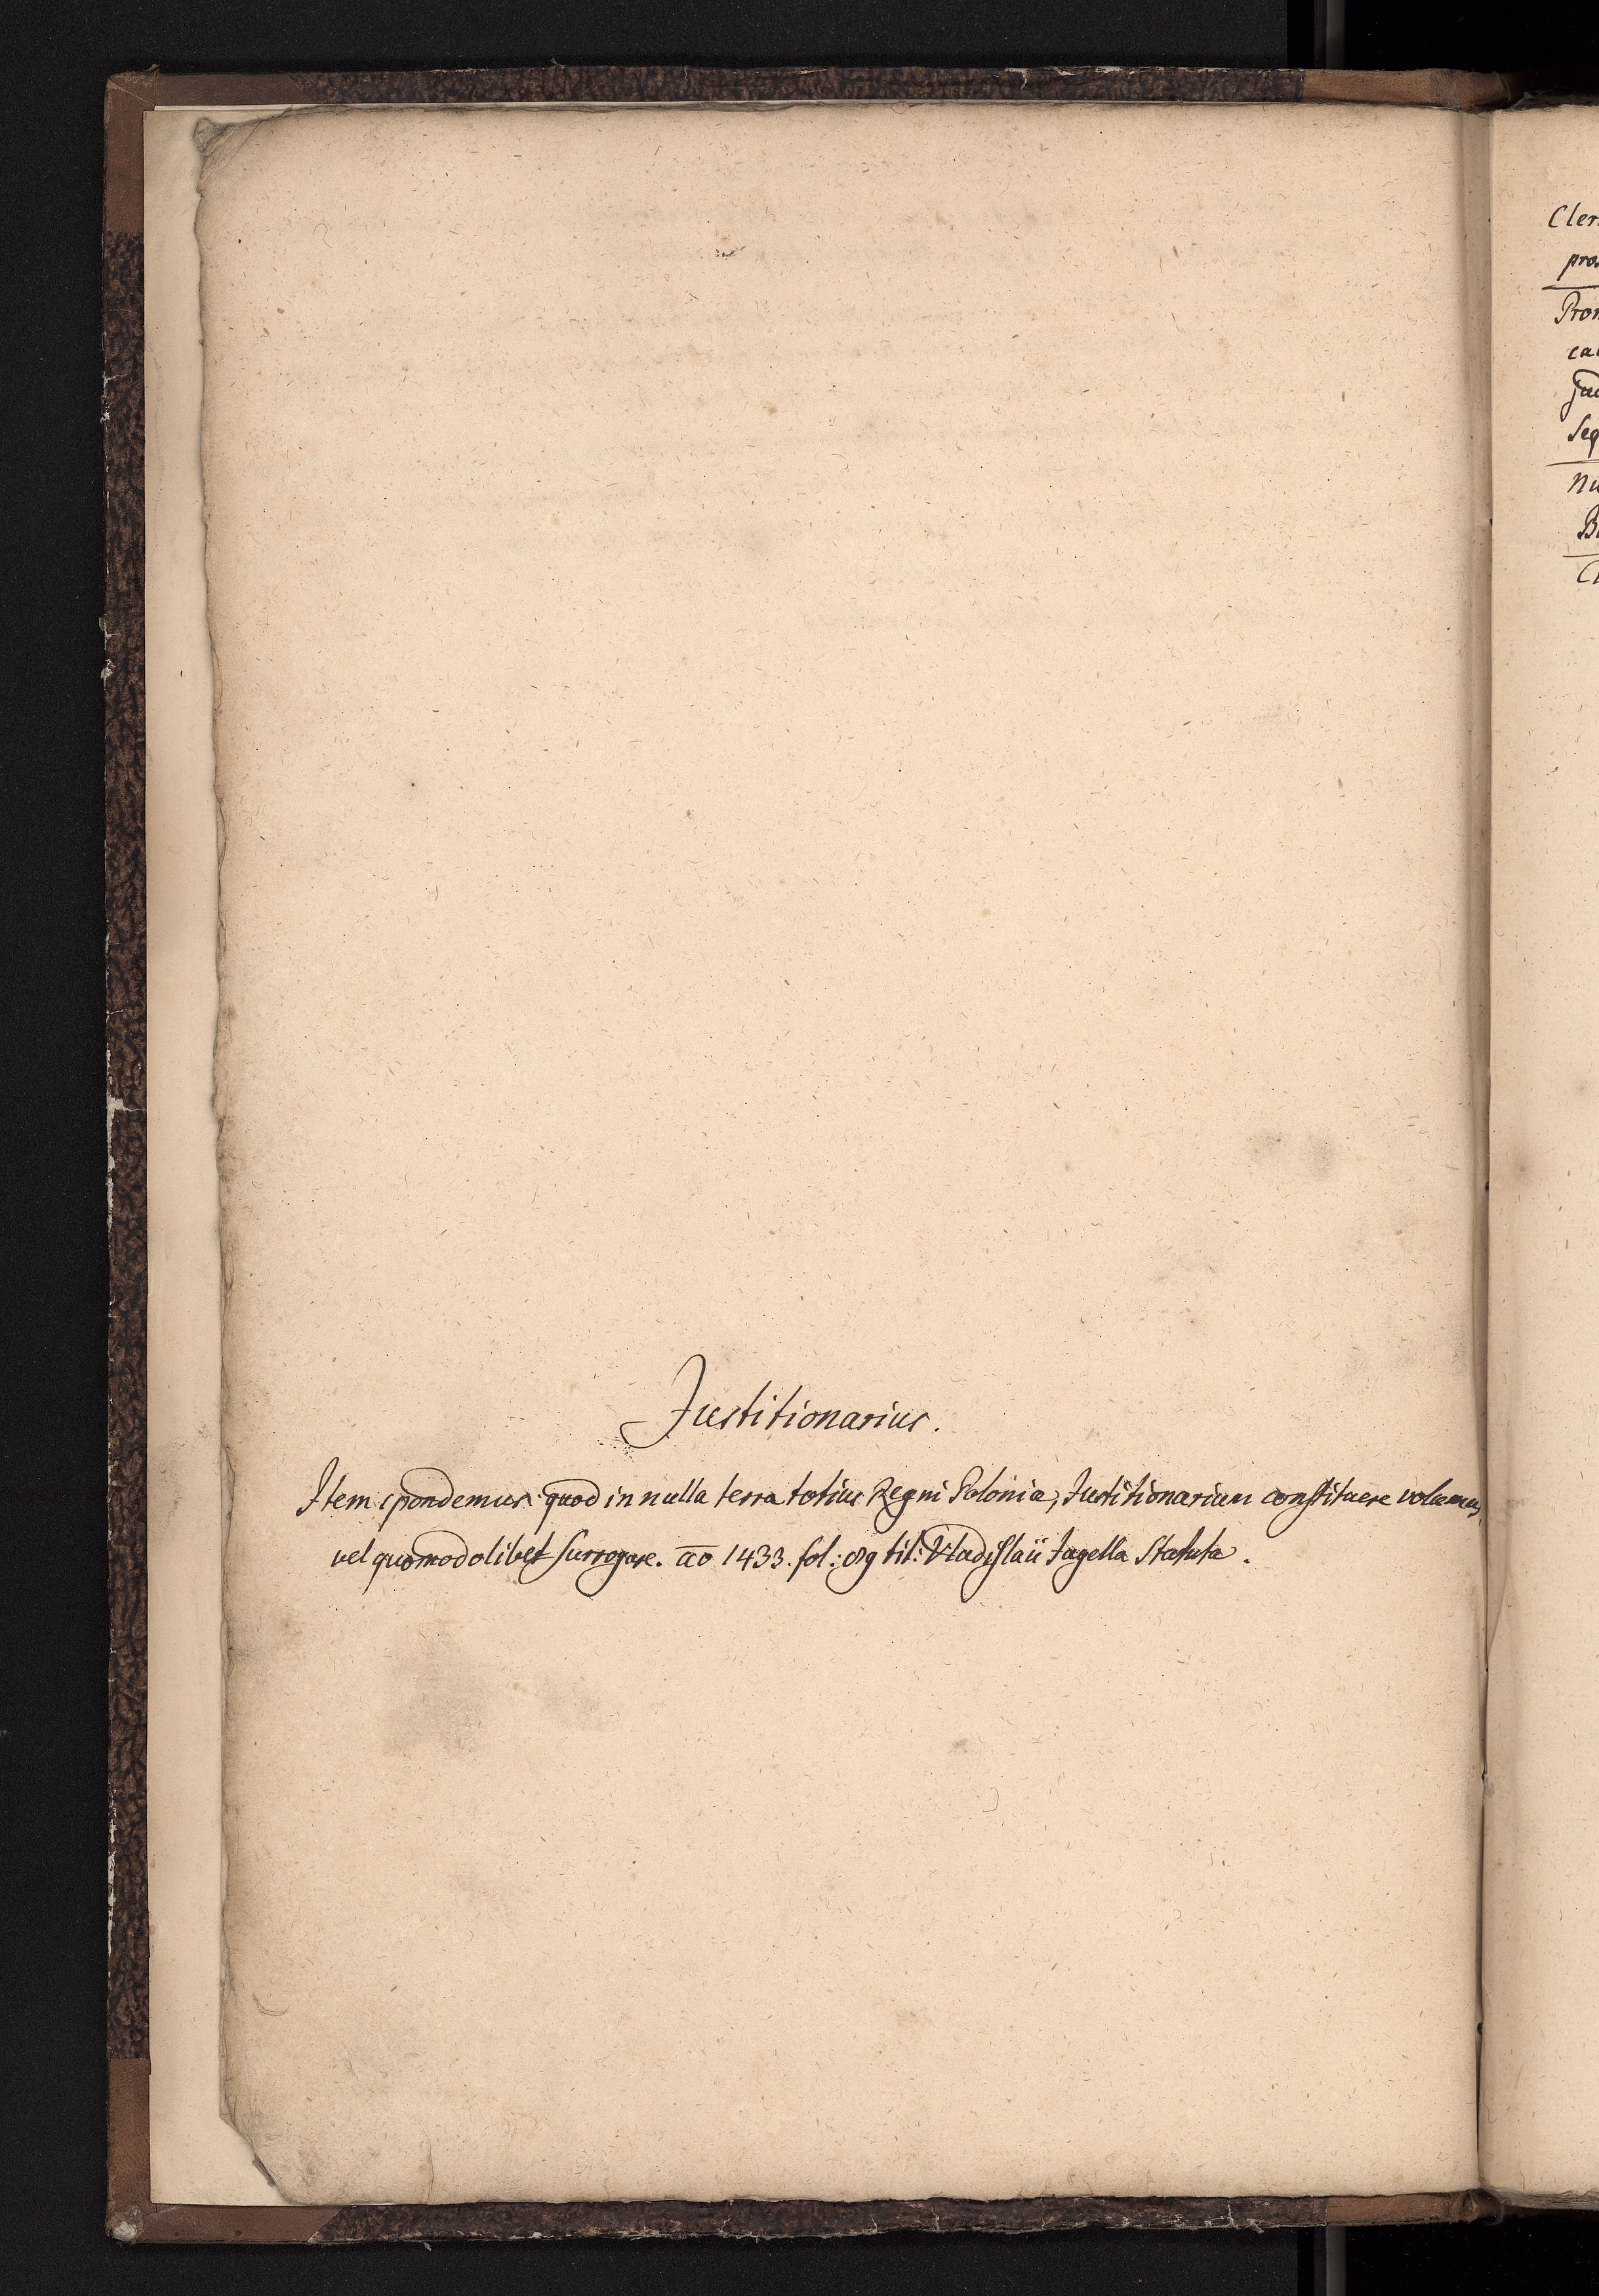 Justitionarius.
Item spondemus: quod in nulla terra totius Regni Polonia, Justitionarium constituere volumus,
vel quomodolibet surrogare. ao 1433. fol: 89 tit: Vladislaii Jagella Statuta.
Cler
pro
Pron
ca
Ju
Seq
Nu
B
Cl